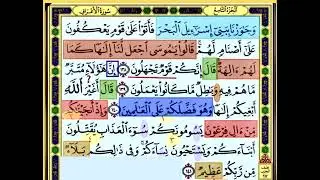 الجزء التاسع
سورة الأعراف
وَجَٰوَزْنَا بِبَنِىٓ إِسْرَٰٓءِيلَ ٱلْبَحْرَ فَأَتَوْا۟ عَلَىٰ قَوْمٍ يَعْكُفُونَ
عَلَىٰٓ أَصْنَامٍ لَّهُمْ قَالُوا۟ يَٰمُوسَى ٱجْعَل لَّنَآ إِلَٰهًا كَمَا
لَهُمْ ءَالِهَةٌ قَالَ إِنَّكُمْ قَوْمٌ تَجْهَلُونَ ١٣٨ إِنَّ هَٰٓؤُلَآءِ مُتَبَّرٌ
مَّا هُمْ فِيهِ وَبَٰطِلٌ مَّا كَانُوا۟ يَعْمَلُونَ ١٣٩ قَالَ أَغَيْرَ ٱللَّهِ
أَبْغِيكُمْ إِلَٰهًا وَهُوَ فَضَّلَكُمْ عَلَى ٱلْعَٰلَمِينَ ١٤٠ وَإِذْ أَنجَيْنَٰكُم
مِّنْ ءَالِ فِرْعَوْنَ يَسُومُونَكُمْ سُوٓءَ ٱلْعَذَابِ يُقَتِّلُونَ
أَبْنَآءَكُمْ وَيَسْتَحْيُونَ نِسَآءَكُمْ وَفِى ذَٰلِكُم بَلَآءٌ
مِّن رَّبِّكُمْ عَظِيمٌ ١٤١